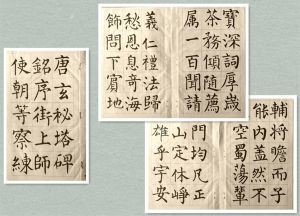 唐玄秘塔碑
銘序街上師
使朝等察練
寶深詞厚識
茶務傾隨薦
属一百聞請
義仁禮法歸
愁恩息奇海
飾問下賓地
輔將瞻而子
能內盖然不
空蜀蕩輩
門均凡正
山定体崢
雄乎宇安